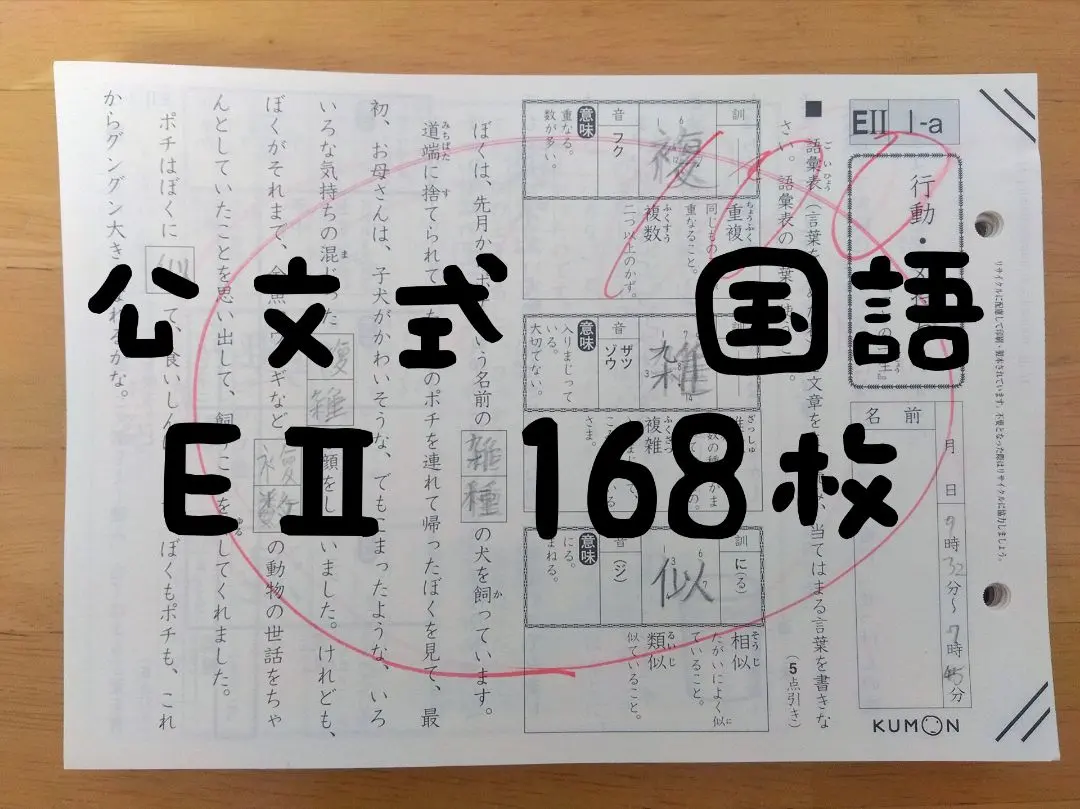 公文式 国語
EⅡ 168枚
EⅡ 1-a
行動・
名前
月
日
9時32分〜
7時45分
KUMON
リサイクルに配慮して印刷・製本されています。不要となった際はリサイクルに協力しましょう。
■ 語彙表(言葉を
さい。語彙表の
文章を
当てはまる言葉を書きな
(5点引き)
訓
複
音 フク
意味 重なる。
数が多い。
重複 ちょうふく
同じもの
重なること。
複数 ふくすう
二つ以上のかず。
雑
音 ザツ
ゾウ
意味 入りまじって
いる。
大切でない。
ざっしゅ
複雑 ふくざつ
さま。
訓 に(る)
似
音 (ジ)
意味 にる。
まねる。
相似 そうじ
たがいによく似
ていること。
類似 るいじ
似ていること。
ぼくは、先月か
いう名前の雑種の犬を飼っています。
道端に捨てられて
のポチを連れて帰ったぼくを見て、最
初、お母さんは、子犬がかわいそうな、でもこまったような、いろ
いろな気持ちの混
複雑
顔をし
いました。けれども、
ぼくがそれまで、金魚
ギなど
複数の動物の世話をちゃ
んとしていたことを思い出して、飼
ことを
してくれました。
ポチはぼくに似て、食いしん
ぼくもポチも、これ
からグングン大き
るかな。